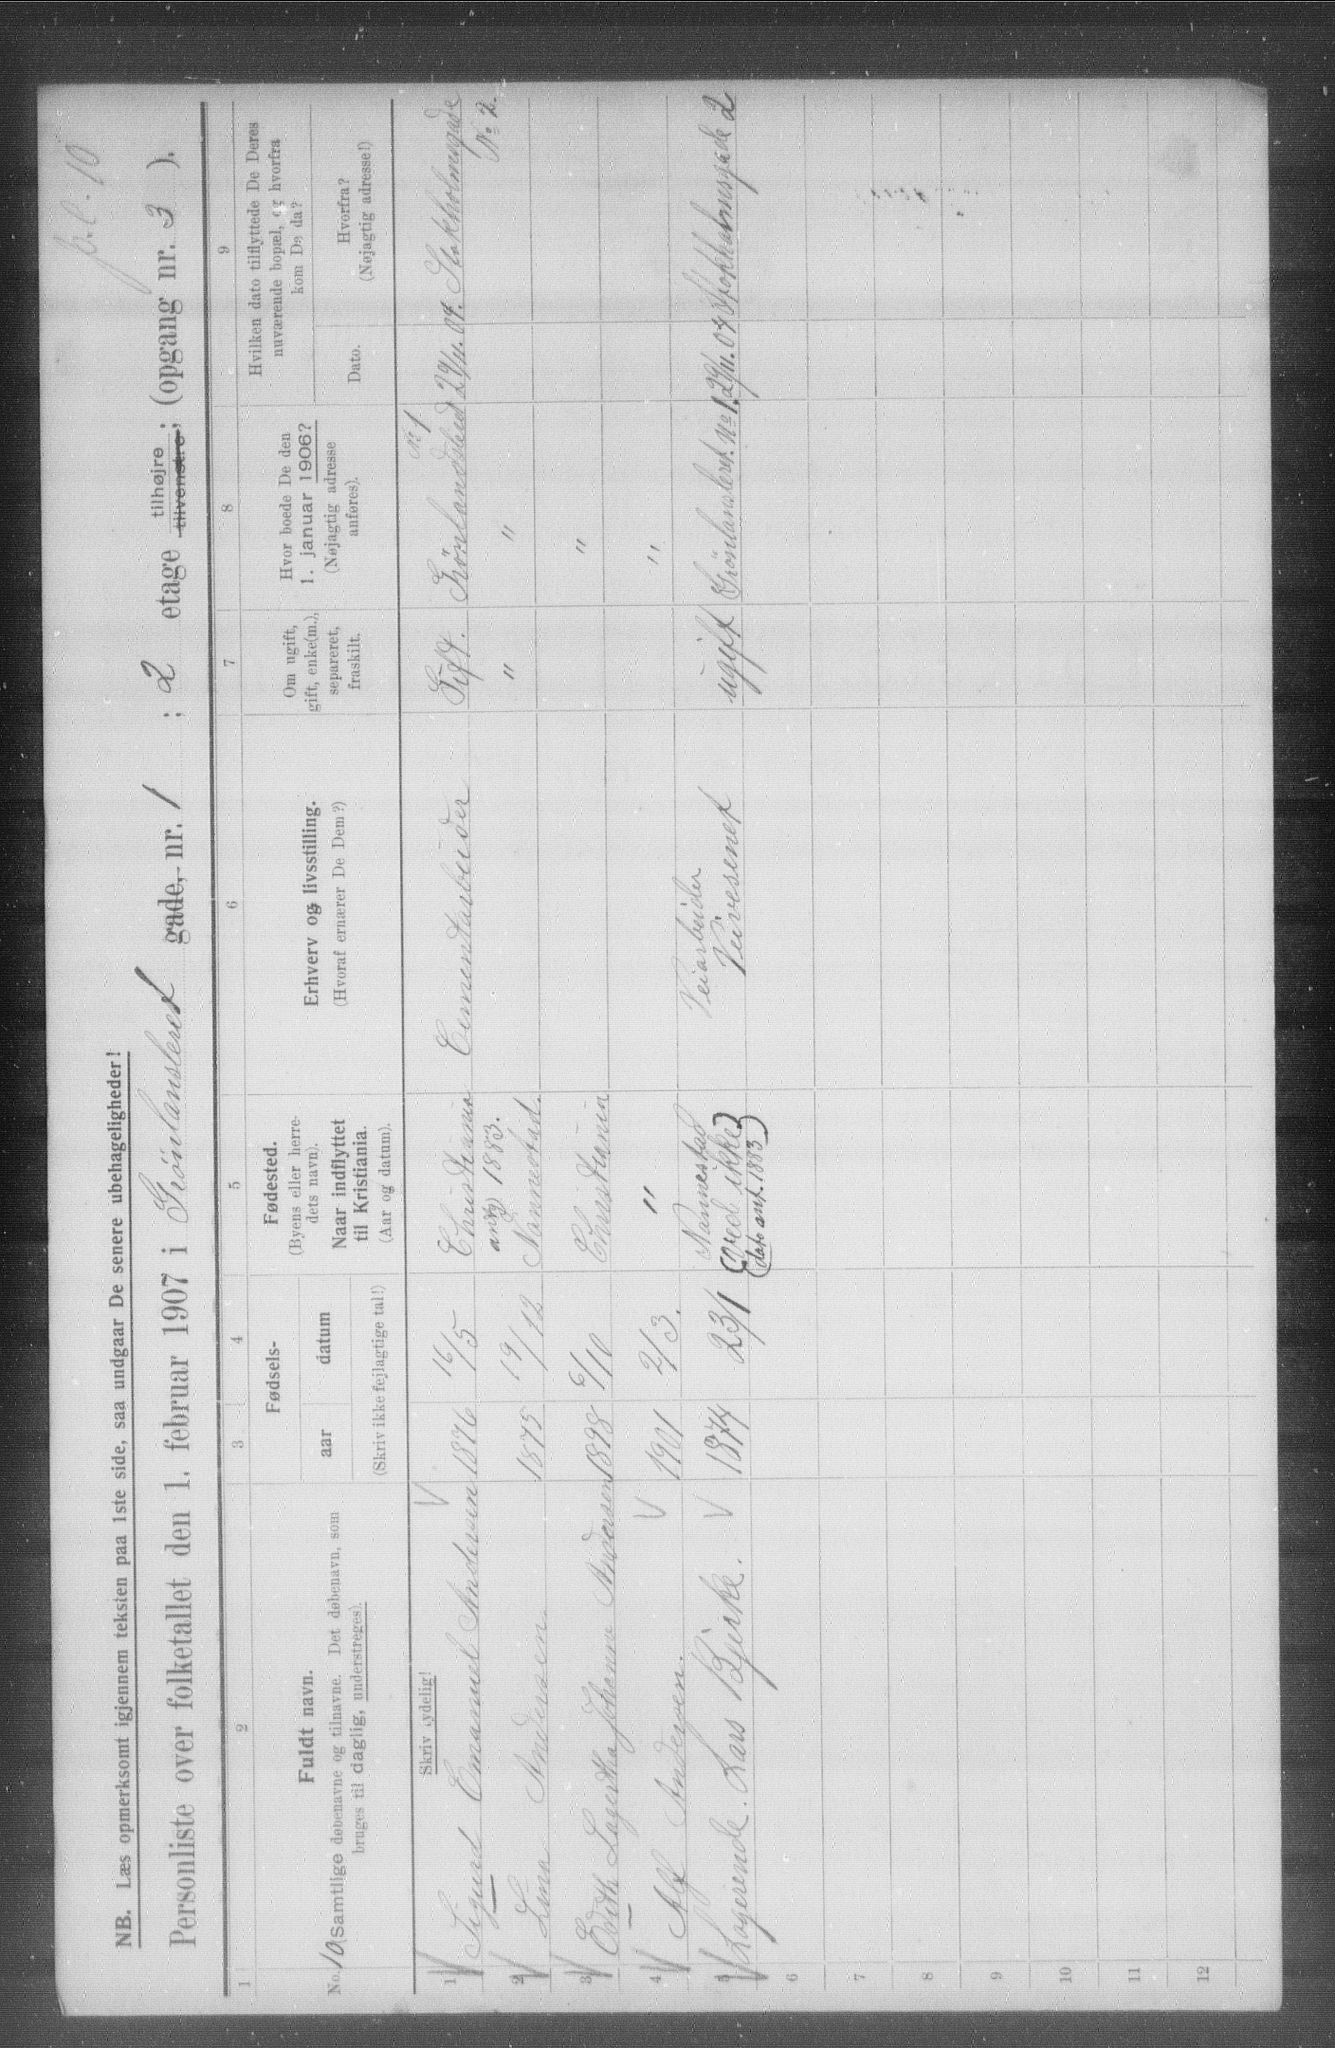 p.l. 10
NB. Læs opmerksomt igjennem teksten paa 1ste side, saa undgaar De senere ubehageligheder!
Personliste over folketallet den 1. februar 1907 i Grönlansleret gade, nr. 1 ; 2 etage tilhøjre tilvenstre; (opgang nr. 3 ).
1 2 3 4 5 6 7 8 9
No. 10
Fuldt navn.
(Samtlige døbenavne og tilnavne. Det døbenavn, som
bruges til daglig, understreges).
Fødsels-
aar datum
(Skriv ikke fejlagtige tal!)
Fødested.
(Byens eller herre-
dets navn).
Naar indflyttet
til Kristiania.
(Aar og datum).
Erhverv og livsstilling.
(Hvoraf ernærer De Dem?)
Om ugift,
gift, enke(m.),
separeret,
fraskilt.
Hvor boede De den
1. januar 1906?
(Nøjagtig adresse
anføres).
Hvilken dato tilflyttede De Deres
nuværende bopæl, og hvorfra
kom De da?
Dato.
Hvorfra?
(Nøjagtig adresse!)
Skriv tydelig!
1 Sigurd Emanuel Andersen 1876 16/5 Christiania Cementarbeider Gift. Grönlandsleret No 1 29/11.04. Stokholmgade No 2.
2 Lina Andersen 1875 19/12 ank 1883. Nannestad. " "
3 Edith Lagertha Johanne Andersen 1898 6/10 Christiania "
4 Alf Andersen. 1901 2/3. " "
5 Logerende. Lars Bjerke. 1874 23/1 Nannestad Veiarbeider Veivesenet ugift Grönlansleret. No 1. 29/11.04 Stokholmsgade 2
(ved ikke)
(dato ank. 1883)
6
7
8
9
10
11
12